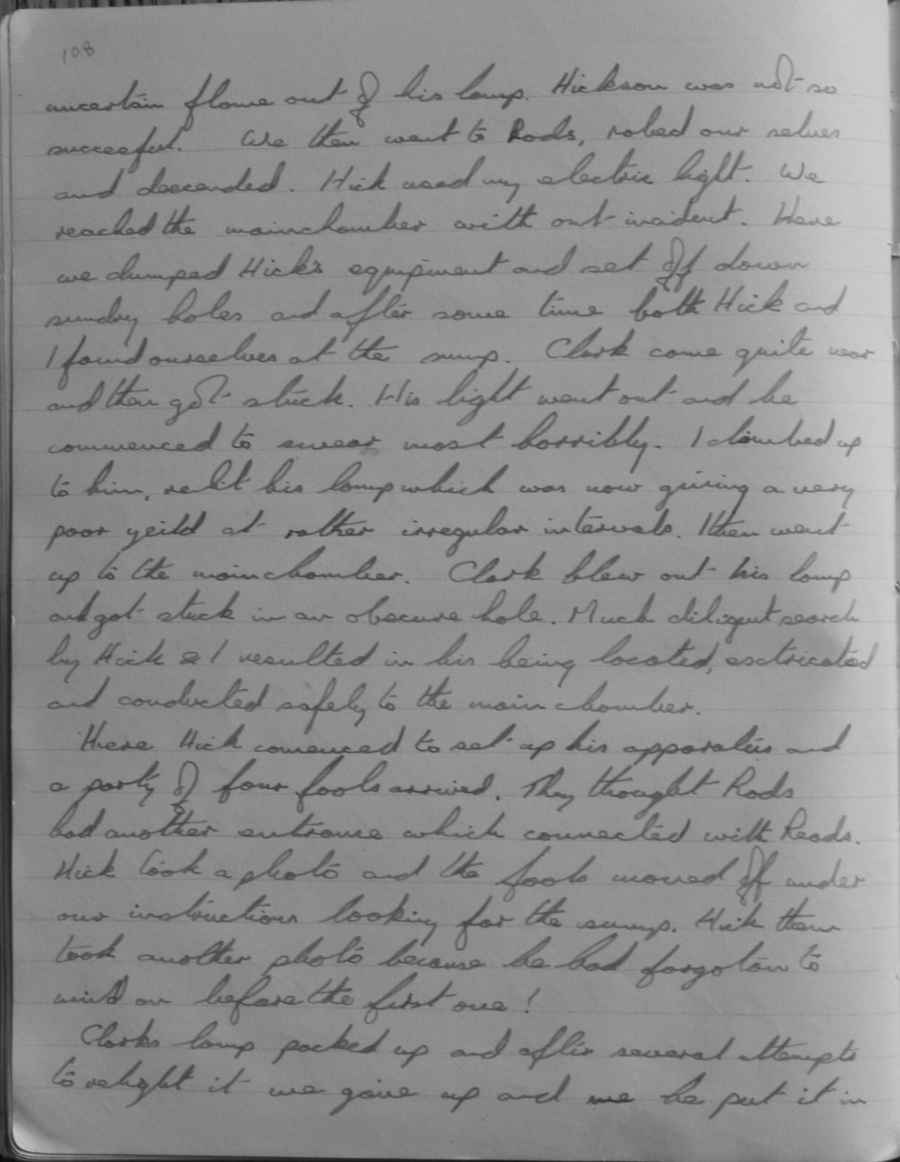 108
uncertain flame out of his lamp. Hickson was not so
succesful. We then went to Rods, robed our selves
and descended. Hick used my electric light. We
reached the mainchamber with out incident. Here
we dumped Hick's equipment and set off down
sundry holes and after some time both Hick and
I found ourselves at the sump. Clark came quite near
and then got stuck. His light went out and he
commenced to swear most horribly. I climbed up
to him, relit his lamp which was now giving a very
poor yeild at rather irregular intervals. I then went
up to the main chamber. Clark blew out his lamp
and got stuck in an obscure hole. Much diligent search
by Hick & I resulted in his being located, exctricated
and conducted safely to the main chamber.
Here Hick comenced to set up his apparatus and
a party of four fools arrived. They thought Rods
had another entrance which connected with Reads.
Hick took a photo and the fools moved off under
our instructions looking for the sump. Hick then
took another photo because he had forgotan to
wind on before the first one!
Clarks lamp packed up and after several attempts
to relight it we gave up and he put it in